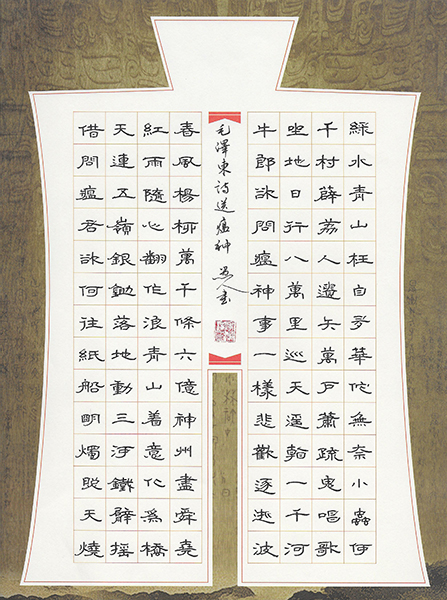 綠水青山枉自多華佗無奈小蟲何
千村薜荔人遺矢萬戶蕭疏鬼唱歌
坐地日行八萬里巡天遥看一千河
牛郎欲問瘟神事一樣悲歡逐逝波
毛澤東詩送瘟神 人書
春風楊柳萬千條六億神州盡舜堯
紅雨隨心翻作浪青山着意化爲橋
天連五嶺銀鋤落地動三河鐵臂搖
借問瘟君欲何往紙船明燭照天燒